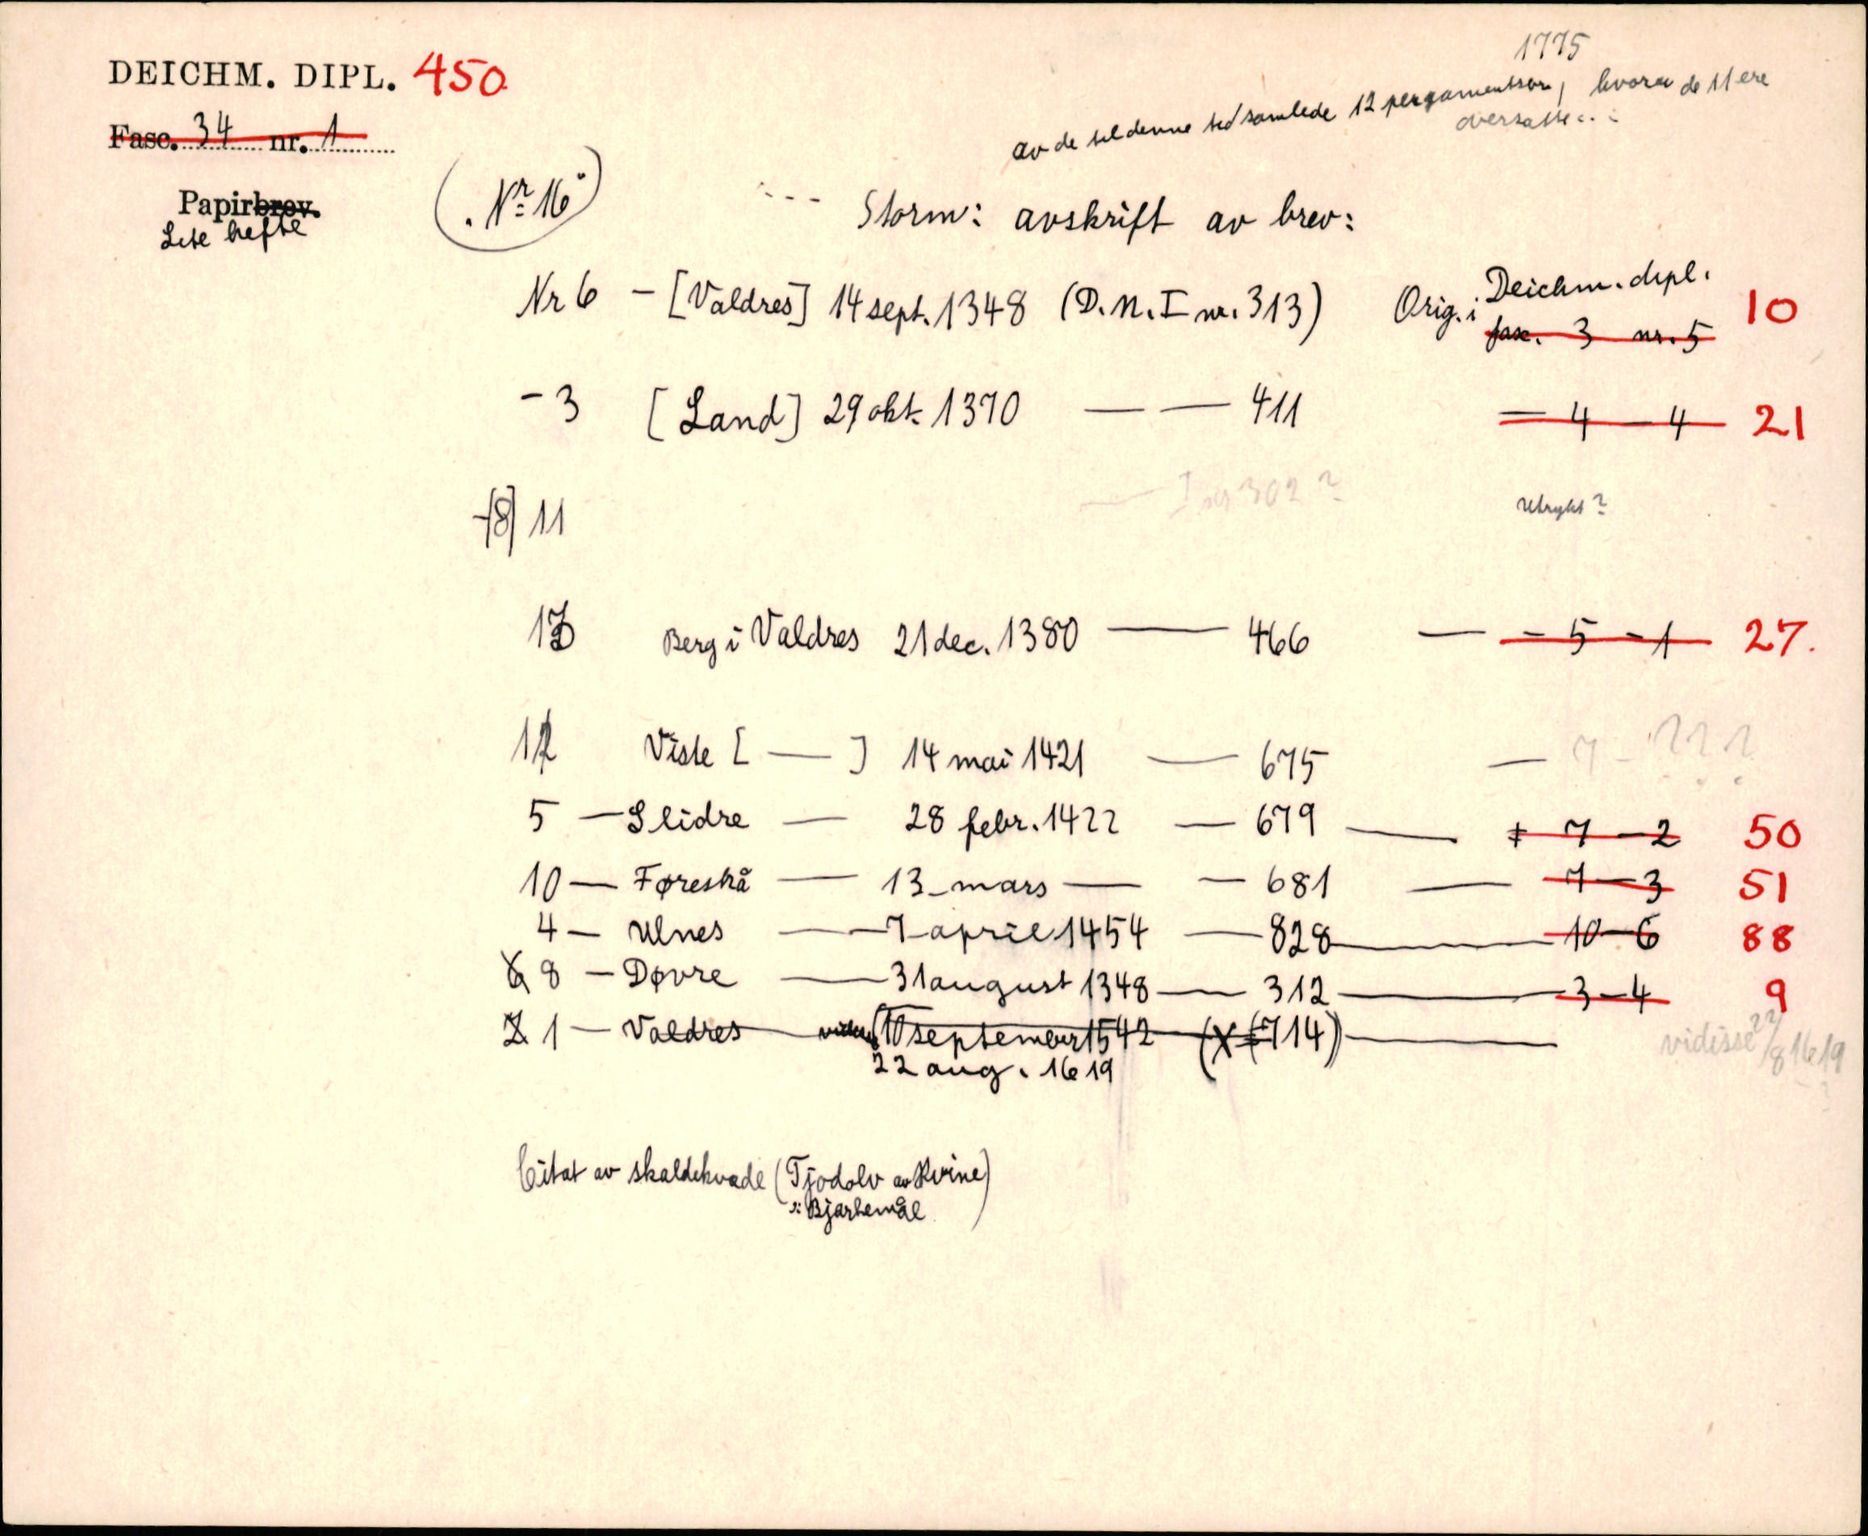 1775
DEICHM. DIPL. 450
av de til denne tid samlede 12 pergamentser, hvorav de 11 ere
oversatte...
Fasc. 34 nr. 1
Papirbrev.
Lite hefte
(Nr. 16)
--- Storm: avskrift av brev:
Nr 6 — [Valdres] 14 sept. 1348 (D.N. I nr. 313) Orig. i Deichm. dipl. 10
fasc. 3 nr. 5
- 3 [Land] 29 okt. 1370 — — 411 = 4 — 4 21
— I nr 302 ?
[8] 11 Utrykt?
Berg i Valdres 21 dec. 1380 — 466 — - 5 - 1 27.
12 Viste [ — ] 14 mai 1421 — 675 — 7 - ? ? ?
5 — Slidre — 28 febr. 1422 — 679 — 7 — 2 50
10 — Føreskå — 13 mars — — 681 — 7 — 3 51
4 — Ulnes — 7 april 1454 — 828 — 10 — 6 88
8 — Døvre — 31 august 1348 — 312 — 3 — 4 9
1 — Valdres — 10 september 1542 — (X 714) — vidisse 22/8 1619
22 aug. 1619
Citat av skaldekvade (Tjodolv av Kvine)
i: Bjarkemål